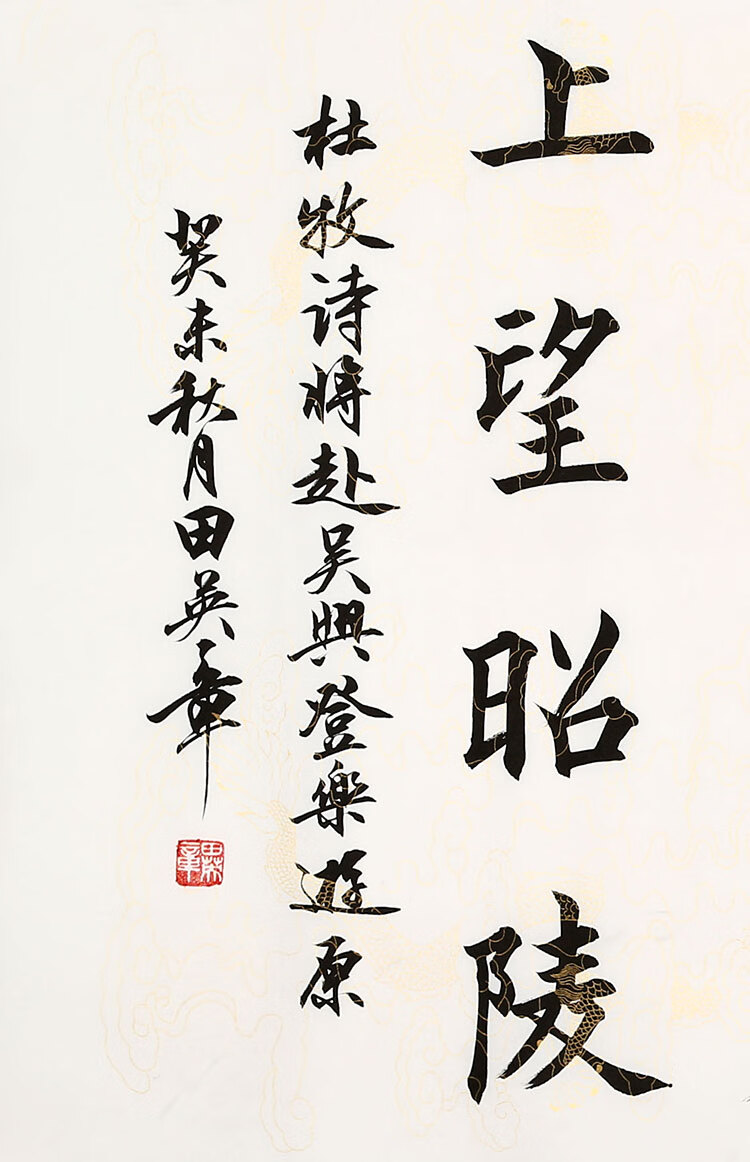 上望昭陵
杜牧诗将赴吴興登樂遊原
癸未秋月田英章
田英章